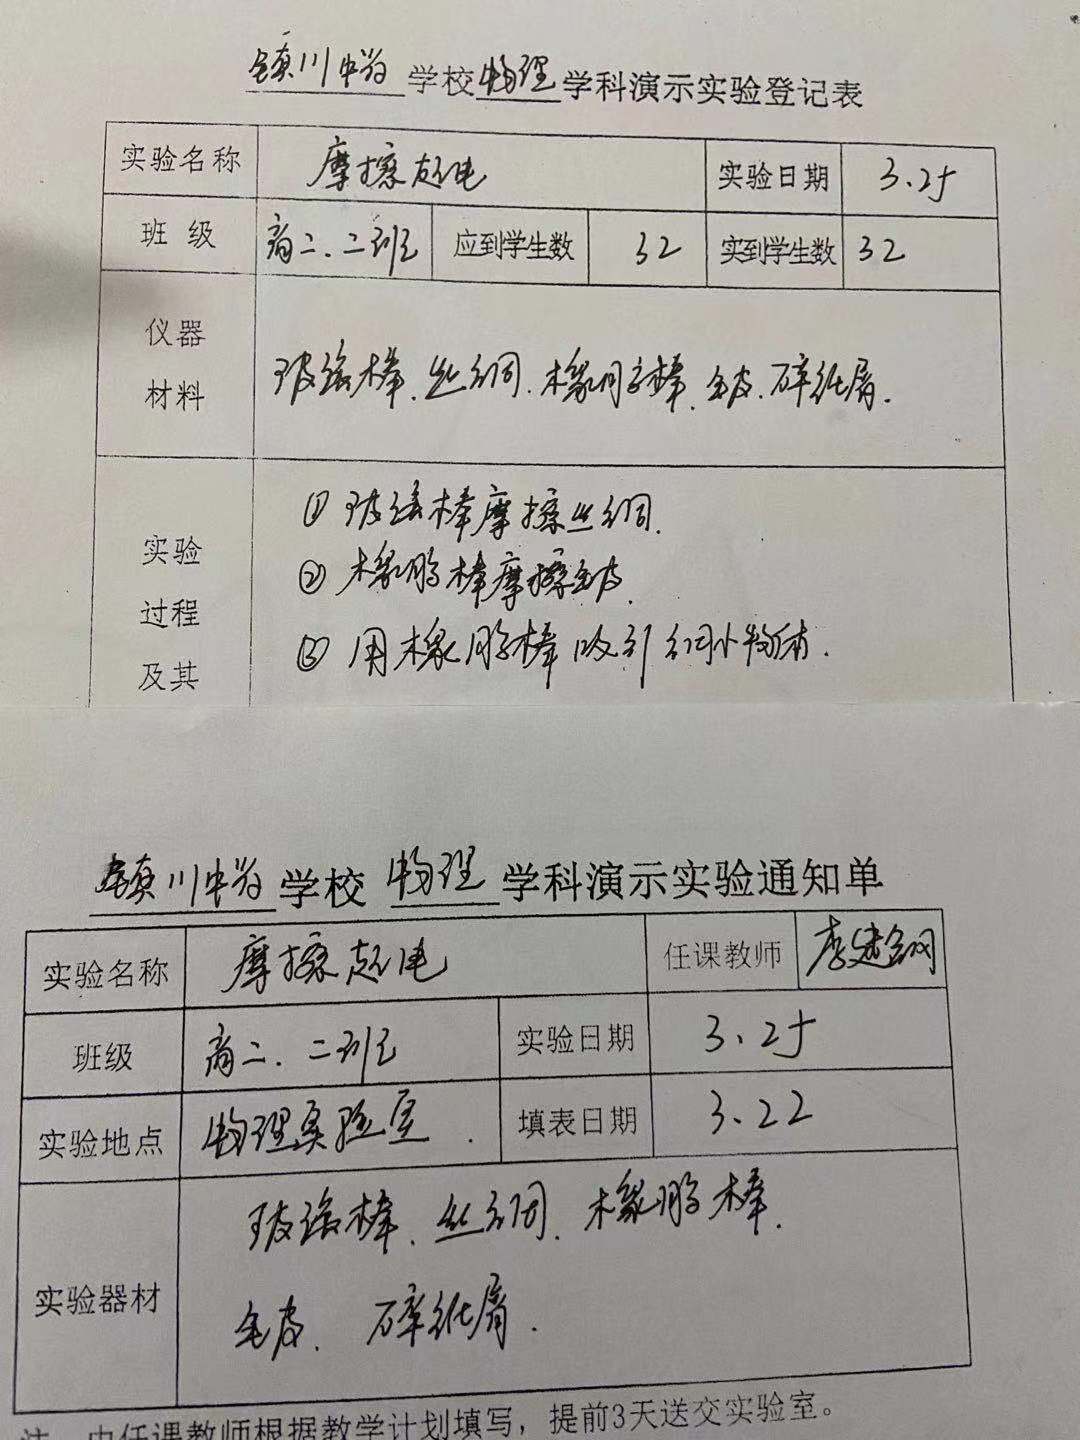 镇川中学学校物理学科演示实验登记表
实验名称 摩擦起电 实验日期 3.25
班级 高二.二班 应到学生数 32 实到学生数 32
仪器材料 玻璃棒、丝绸、橡胶棒、毛皮、碎纸屑.
实验过程及其
① 玻璃棒摩擦丝绸.
② 橡胶棒摩擦毛皮.
③ 用橡胶棒吸引细小物体.
镇川中学学校物理学科演示实验通知单
实验名称 摩擦起电 任课教师 李建纲
班级 高二.二班 实验日期 3.25
实验地点 物理实验室. 填表日期 3.22
实验器材 玻璃棒、丝绸、橡胶棒.
毛皮、碎纸屑.
注 由任课教师根据教学计划填写，提前3天送交实验室。